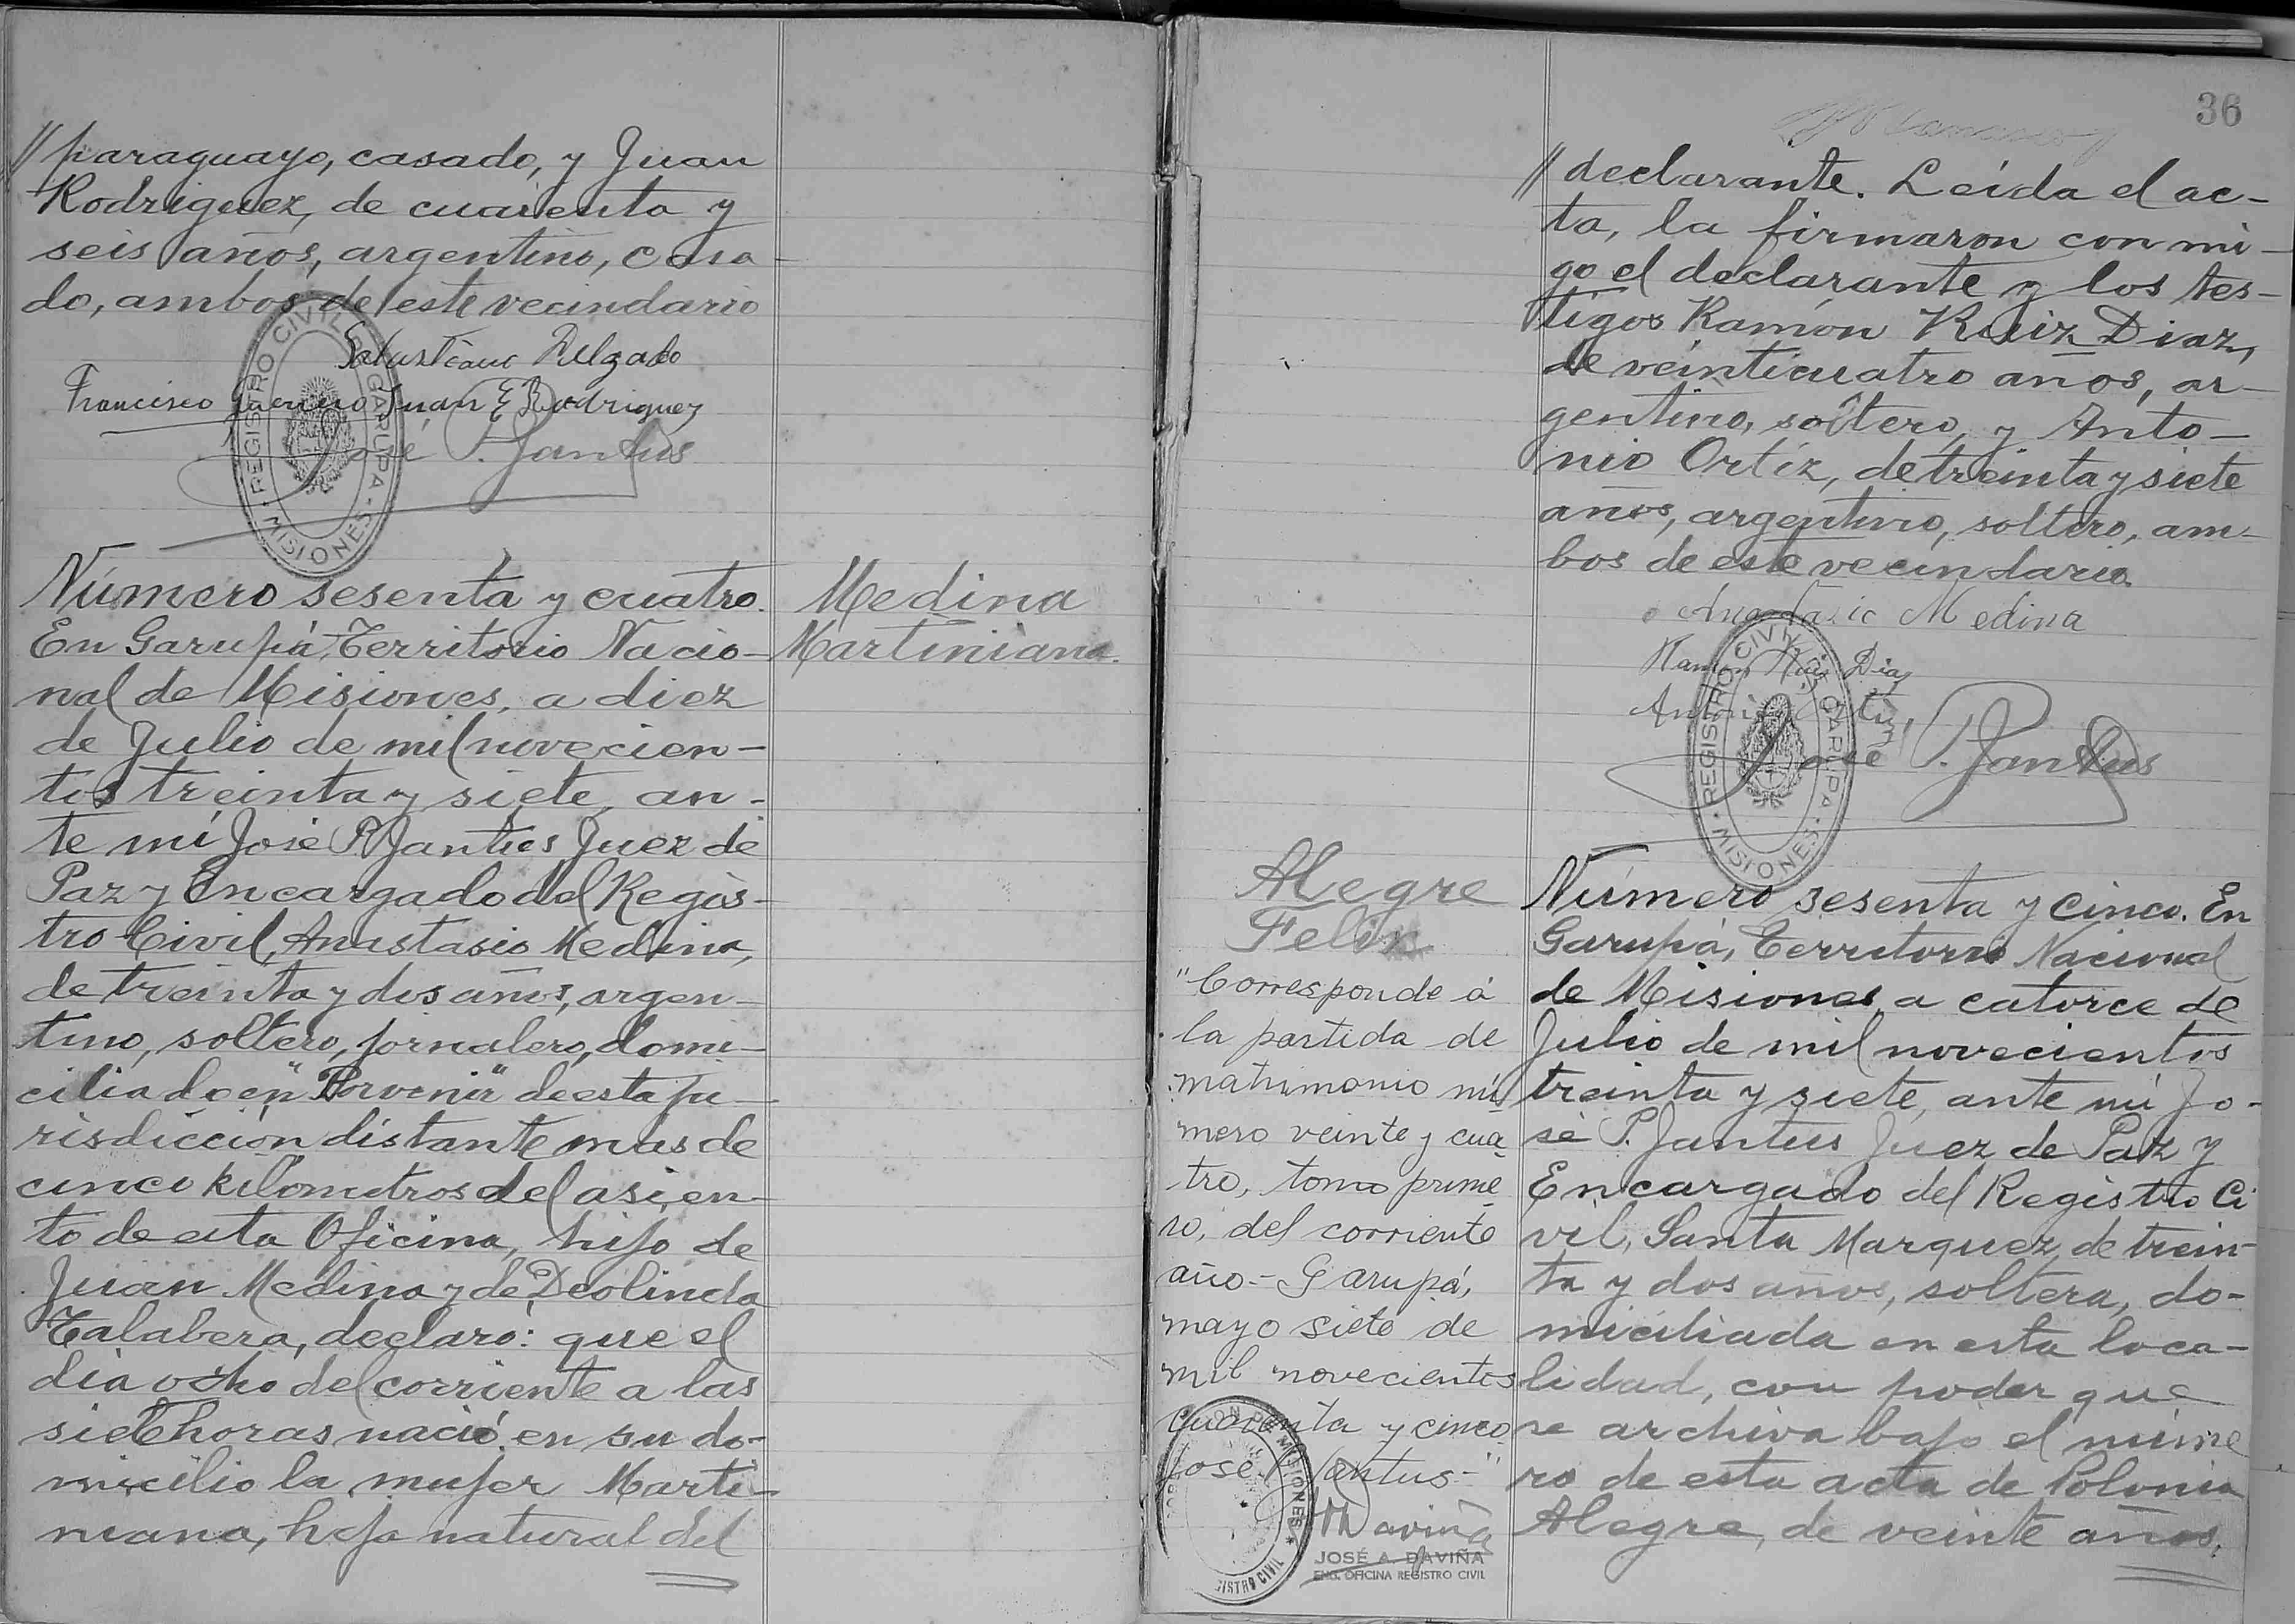 // paraguayo, casado, y Juan
Rodriguez, de cuarenta y
seis años, argentino, casa-
do, ambos de este vecindario
Salustiano Delgado
Francisco Juan E Rodriguez
José P. Jantus
REGISTRO CIVIL GARUPA
MISIONES
Número sesenta y cuatro.
En Garupá, Territorio Nacio-
nal de Misiones, a diez
de Julio de mil novecien-
tos treinta y siete, an-
te mí José P. Jantus Juez de
Paz y Encargado del Regis-
tro Civil, Anastasio Medina,
de treinta y dos años, argen-
tino, soltero, jornalero, domi-
ciliado en "Porvenir" de esta ju-
risdicción distante mas de
cinco kilometros del asien-
to de esta Oficina, hijo de
Juan Medina y de Deolinda
Talabera, declaró: que el
dia ocho del corriente a las
siete horas nació en su do-
micilio la mujer Marti-
niana, hija natural del
Medina
Martiniana.
36
// declarante. Leída el ac-
ta, la firmaron con mi-
go el declarante y los tes-
tigos Ramón Ruiz Diaz,
de veinticuatro años, ar-
gentino, soltero, y Anto-
nio Ortíz, de treinta y siete
años, argentino, soltero, am-
bos de este vecindario.
Anastasio Medina
Ramon Ruiz Diaz
Antonio Ortiz
José P. Jantus
REGISTRO CIVIL GARUPA
MISIONES
Alegre
Felix
"Corresponde á
la partida de
matrimonio nú
mero veinte y cua
tro, tomo prime
ro, del corriente
año.- Garupá,
mayo siete de
mil novecientos
cuarenta y cinco
José P. Jantus-"
JOSÉ A. DAVIÑA
ENC. OFICINA REGISTRO CIVIL
Número sesenta y cinco. En
Garupá, Territorio Nacional
de Misiones, a catorce de
Julio de mil novecientos
treinta y siete, ante mí Jo-
sé P. Jantus Juez de Paz y
Encargado del Registro Ci
vil, Santa Marquez, de trein-
ta y dos años, soltera, do-
miciliada en esta loca-
lidad, con poder que
se archiva bajo el núme
ro de esta acta de Polonia
Alegre, de veinte años,